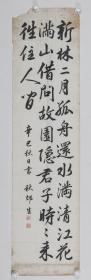 新林二月孤舟還水滿清江花
滿山借問故園隱君子時時來
往住人間
辛巳秋日書 秋邨生